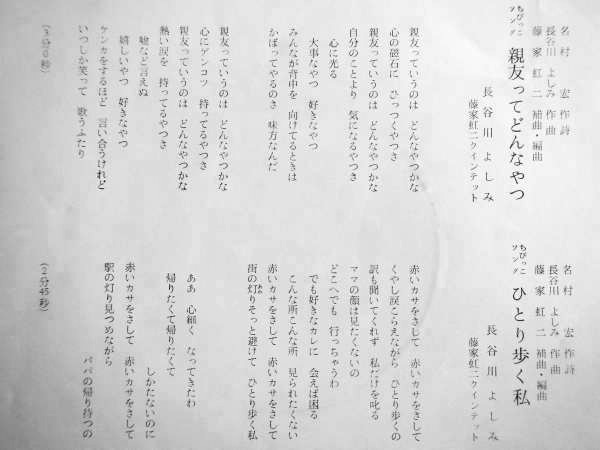 名村 宏 作詩
長谷川 よしみ 作曲
藤家 虹二 補曲・編曲
ちびっこソング 親友ってどんなやつ
長谷川よしみ
藤家虹二クインテット
親友っていうのは どんなやつかな
心の磁石に ひっつくやつさ
親友っていうのは どんなやつかな
自分のことより 気になるやつさ
心に光る
大事なやつ 好きなやつ
みんなが背中を 向けてるときは
かばってやるのさ 味方なんだ
親友っていうのは どんなやつかな
心にゲンコツ 持ってるやつさ
親友っていうのは どんなやつかな
熱い涙を 持ってるやつさ
嘘など言えぬ
嬉しいやつ 好きなやつ
ケンカをするほど 言い合うけれど
いつしか笑って 歌うふたり
(3分0秒)
名村 宏 作詩
長谷川 よしみ 作曲
藤家 虹二 補曲・編曲
ちびっこソング ひとり歩く私
長谷川よしみ
藤家虹二クインテット
赤いカサをさして 赤いカサをさして
くやし涙こらえながら ひとり歩くの
訳も聞いてくれず 私だけを叱る
ママの顔は見たくないの
どこへでも 行っちゃうわ
でも好きなカレに 会えば困る
こんな所こんな所 見られたくない
赤いカサをさして 赤いカサをさして
街の灯りそっと避けて ひとり歩く私
ああ 心細く なってきたわ
帰りたくて帰りたくて
しかたないのに
赤いカサをさして 赤いカサをさして
駅の灯り見つめながら
パパの帰り待つの
(2分45秒)